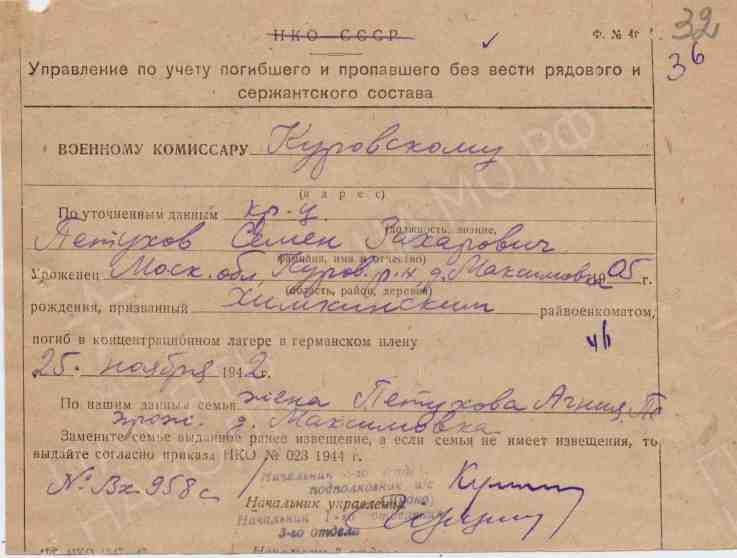 32
НКО СССР
Ф. № 4г
36
Управление по учету погибшего и пропавшего без вести рядового и
сержантского состава
ВОЕННОМУ КОМИССАРУ Куровскому
(адрес)
По уточненным данным кр-ц
(должность, звание,
Петухов Семен Захарович
фамилия, имя и отчество)
Уроженец Моск. обл. Куров. р-н д. Максимовка 1905 г.
(область, район, деревня)
рождения, призванный Химкинским райвоенкоматом,
погиб в концентрационном лагере в германском плену
25. ноября 1942г.
По нашим данным семья жена Петухова Агния
прож. д. Максимовка
Замените семье выданное ранее извещение, а если семья не имеет извещения, то
выдайте согласно приказа НКО № 023 1944 г.
№ Вх 958с
Начальник отдела
подполковник и/с
Начальник управления
Начальник 1-го отделения
3-го отдела